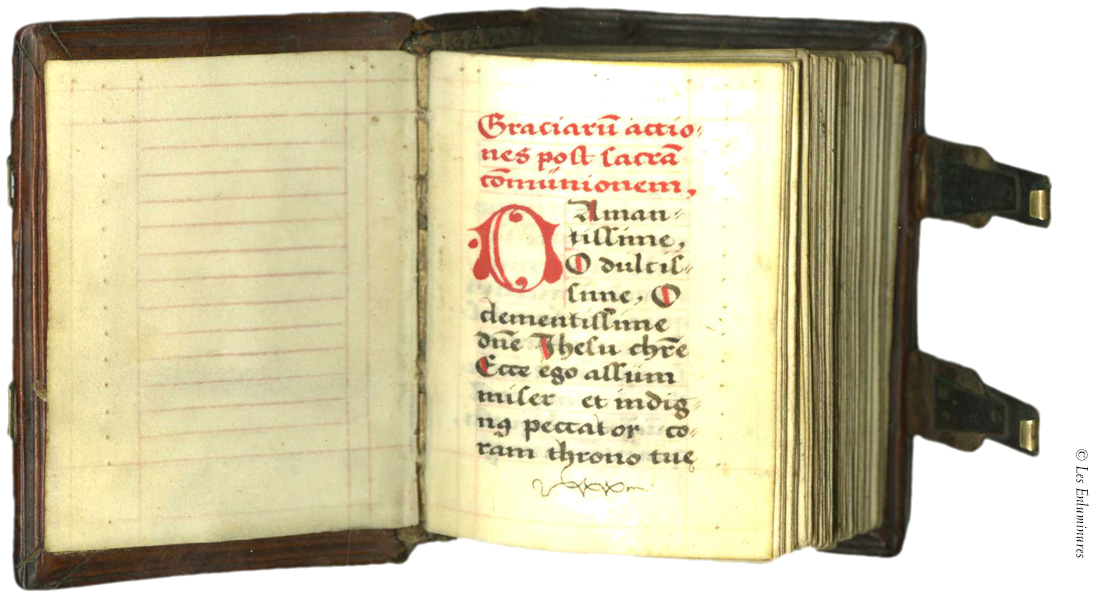 Graciarū actio⸗
nes post sacrā
cōmunionem,
O Aman⸗
tissime,
O dulcis⸗
sime, O
clementissime
dn̄e Jhesu chr̄e
Ecce ego assum
miser et indig⸗
nꝰ peccator co⸗
ram throno tuę
© Les Enluminures